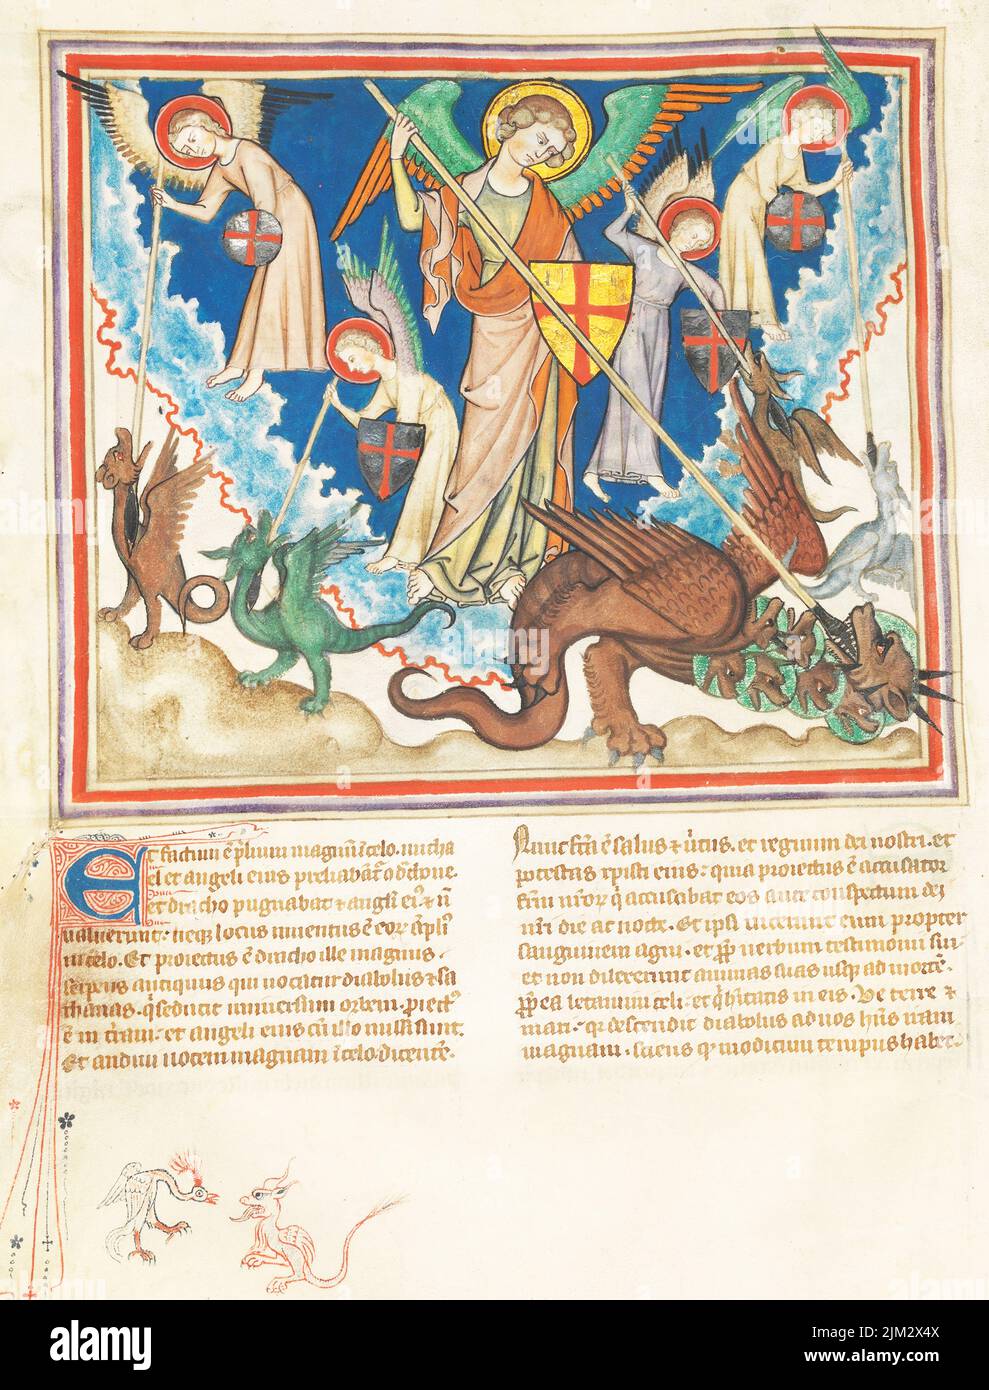 Et factum ē p̄lium magnū ī celo. micha
el et angeli eius preliabāt̄ cū dracone.
et dracho pugnabat ⁊ angli ei⁹ ⁊ nō
ualuerunt. neqʒ locus inuentus ē eoꝝ āpli⁹
in celo. Et proiectus ē dracho ille magnus.
serpens antiquus qui uocatur diabolus ⁊ sa
thanas. q̄ seducit uniuersum orbem. proiect⁹
ē in t̄ram. et angeli eius cū illo missi sunt.
Et audiui uocem magnam ī celo dicentē.
Nunc fc̄a ē salus ⁊ uirtus. et regnum dei nostri. et
potestas xpisti eius: quia proiectus ē accusator
fr̄m nr̄oꝝ q̄ accusabat eos ante conspectum dei
nr̄i die ac nocte. Et ipsi uicerunt eum propter
sanguinem agni. et ꝓp̄ uerbum testimonii sui.
et non dilexerunt animas suas usqʒ ad mortē.
ꝓp̄ea letamini celi. et q̄ habitatis in eis. Ve terre ⁊
mari. q̄ descendit diabolus ad uos hn̄s iram
magnam. sciens q̄ modicum tempus habet.
alamy
Image ID: 2JM2X4X
www.alamy.com